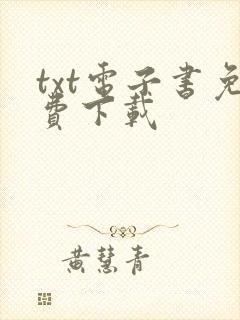 txt電子書免
費下載
黃慧青